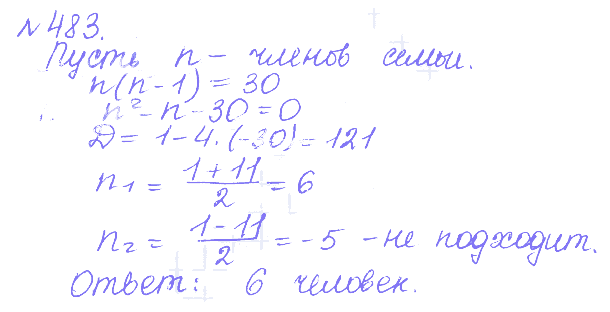 №483.
Пусть n - членов семьи.
n(n-1) = 30
n² - n - 30 = 0
Д = 1 - 4 · (-30) = 121
n₁ = (1 + 11)/2 = 6
n₂ = (1 - 11)/2 = -5 - не подходит.
Ответ: 6 человек.